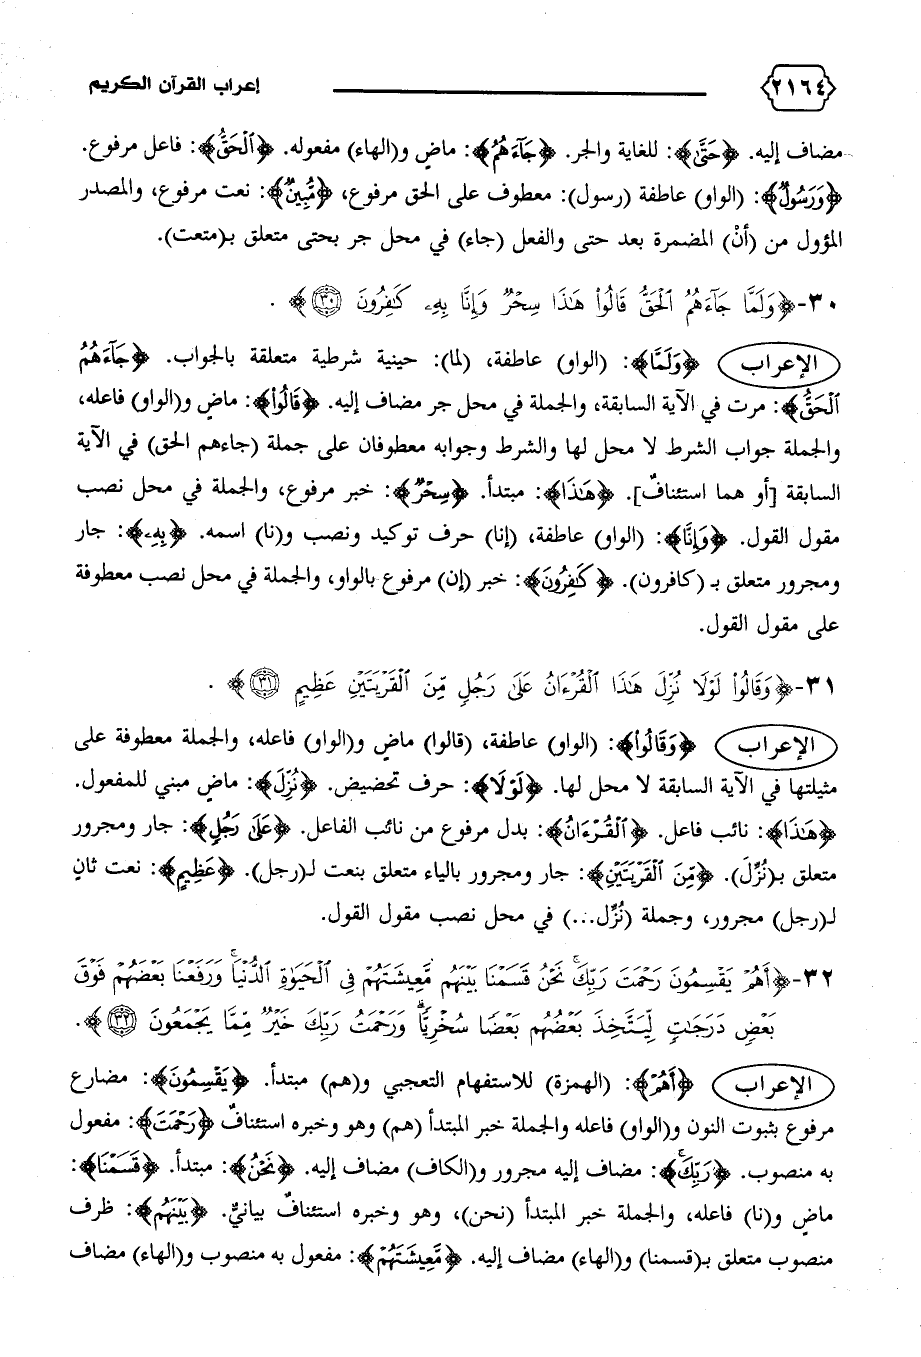 ٢١٦٤ إعراب القرآن الكريم
مضاف إليه. ﴿حَتَّىٰ﴾: للغاية والجر. ﴿جَآءَهُمُ﴾: ماضٍ و(الهاء) مفعوله. ﴿ٱلْحَقُّ﴾: فاعل مرفوع.
﴿وَرَسُولٌ﴾: (الواو) عاطفة (رسول): معطوف على الحق مرفوع، ﴿مُّبِينٌ﴾: نعت مرفوع، والمصدر
المؤول من (أنْ) المضمرة بعد حتى والفعل (جاء) في محل جر بحتى متعلق بـ(متعت).
٣٠-﴿وَلَمَّا جَآءَهُمُ ٱلْحَقُّ قَالُوا۟ هَـٰذَا سِحْرٌ وَإِنَّا بِهِۦ كَـٰفِرُونَ ٣٠﴾ .
الإعراب ﴿وَلَمَّا﴾: (الواو) عاطفة، (لما): حينية شرطية متعلقة بالجواب. ﴿جَآءَهُمُ
ٱلْحَقُّ﴾: مرت في الآية السابقة، والجملة في محل جر مضاف إليه. ﴿قَالُوا۟﴾: ماضٍ و(الواو) فاعله،
والجملة جواب الشرط لا محل لها والشرط وجوابه معطوفان على جملة (جاءهم الحق) في الآية
السابقة [أو هما استئنافٌ]. ﴿هَـٰذَا﴾: مبتدأ. ﴿سِحْرٌ﴾: خبر مرفوع، والجملة في محل نصب
مقول القول. ﴿وَإِنَّا﴾: (الواو) عاطفة، (إنا) حرف توكيد ونصب و(نا) اسمه. ﴿بِهِۦ﴾: جار
ومجرور متعلق بـ (كافرون). ﴿كَـٰفِرُونَ﴾: خبر (إن) مرفوع بالواو، والجملة في محل نصب معطوفة
على مقول القول.
٣١-﴿وَقَالُوا۟ لَوْلَا نُزِّلَ هَـٰذَا ٱلْقُرْءَانُ عَلَىٰ رَجُلٍ مِّنَ ٱلْقَرْيَتَيْنِ عَظِيمٍ ٣١﴾ .
الإعراب ﴿وَقَالُوا۟﴾: (الواو) عاطفة، (قالوا) ماضٍ و(الواو) فاعله، والجملة معطوفة على
مثيلتها في الآية السابقة لا محل لها. ﴿لَوْلَا﴾: حرف تحضيض. ﴿نُزِّلَ﴾: ماضٍ مبني للمفعول.
﴿هَـٰذَا﴾: نائب فاعل. ﴿ٱلْقُرْءَانُ﴾: بدل مرفوع من نائب الفاعل. ﴿عَلَىٰ رَجُلٍ﴾: جار ومجرور
متعلق بـ(نُزِّلَ). ﴿مِّنَ ٱلْقَرْيَتَيْنِ﴾: جار ومجرور بالياء متعلق بنعت لـ(رجل). ﴿عَظِيمٍ﴾: نعت ثانٍ
لـ(رجل) مجرور، وجملة (نُزِّل...) في محل نصب مقول القول.
٣٢-﴿أَهُمْ يَقْسِمُونَ رَحْمَتَ رَبِّكَ ۚ نَحْنُ قَسَمْنَا بَيْنَهُم مَّعِيشَتَهُمْ فِى ٱلْحَيَوٰةِ ٱلدُّنْيَا ۚ وَرَفَعْنَا بَعْضَهُمْ فَوْقَ
بَعْضٍ دَرَجَـٰتٍ لِّيَتَّخِذَ بَعْضُهُم بَعْضًا سُخْرِيًّا ۗ وَرَحْمَتُ رَبِّكَ خَيْرٌ مِّمَّا يَجْمَعُونَ ٣٢﴾.
الإعراب ﴿أَهُمْ﴾: (الهمزة) للاستفهام التعجبي و(هم) مبتدأ. ﴿يَقْسِمُونَ﴾: مضارع
مرفوع بثبوت النون و(الواو) فاعله والجملة خبر المبتدأ (هم) وهو وخبره استئنافٌ ﴿رَحْمَتَ﴾: مفعول
به منصوب. ﴿رَبِّكَ ۚ﴾: مضاف إليه مجرور و(الكاف) مضاف إليه. ﴿نَحْنُ﴾: مبتدأ. ﴿قَسَمْنَا﴾:
ماضٍ و(نا) فاعله، والجملة خبر المبتدأ (نحن)، وهو وخبره استئنافٌ بيانيٌّ. ﴿بَيْنَهُم﴾: ظرف
منصوب متعلق بـ(قسمنا) و(الهاء) مضاف إليه. ﴿مَّعِيشَتَهُمْ﴾: مفعول به منصوب و(الهاء) مضاف